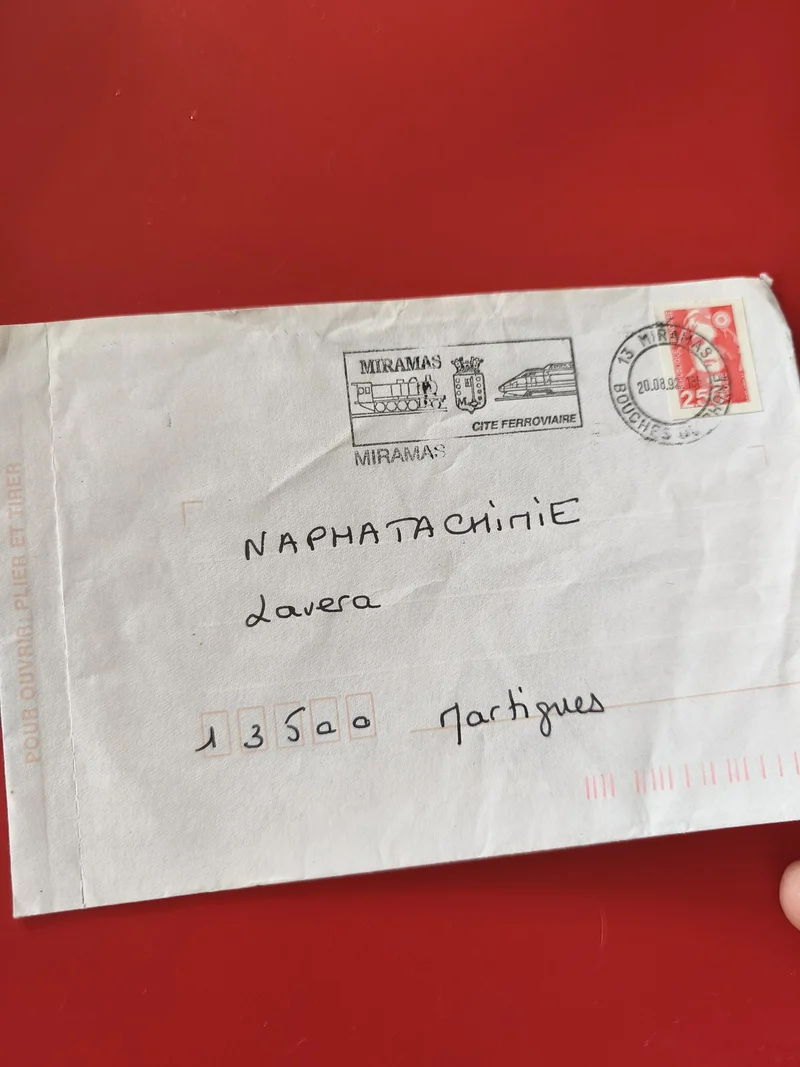 MIRAMAS
M
CITE FERROVIAIRE
MIRAMAS
13 MIRAMAS
BOUCHES DU RHONE
20.08.92
NAPHATACHIMIE
Lavera
13500 Martigues
POUR OUVRIR: PLIER ET TIRER